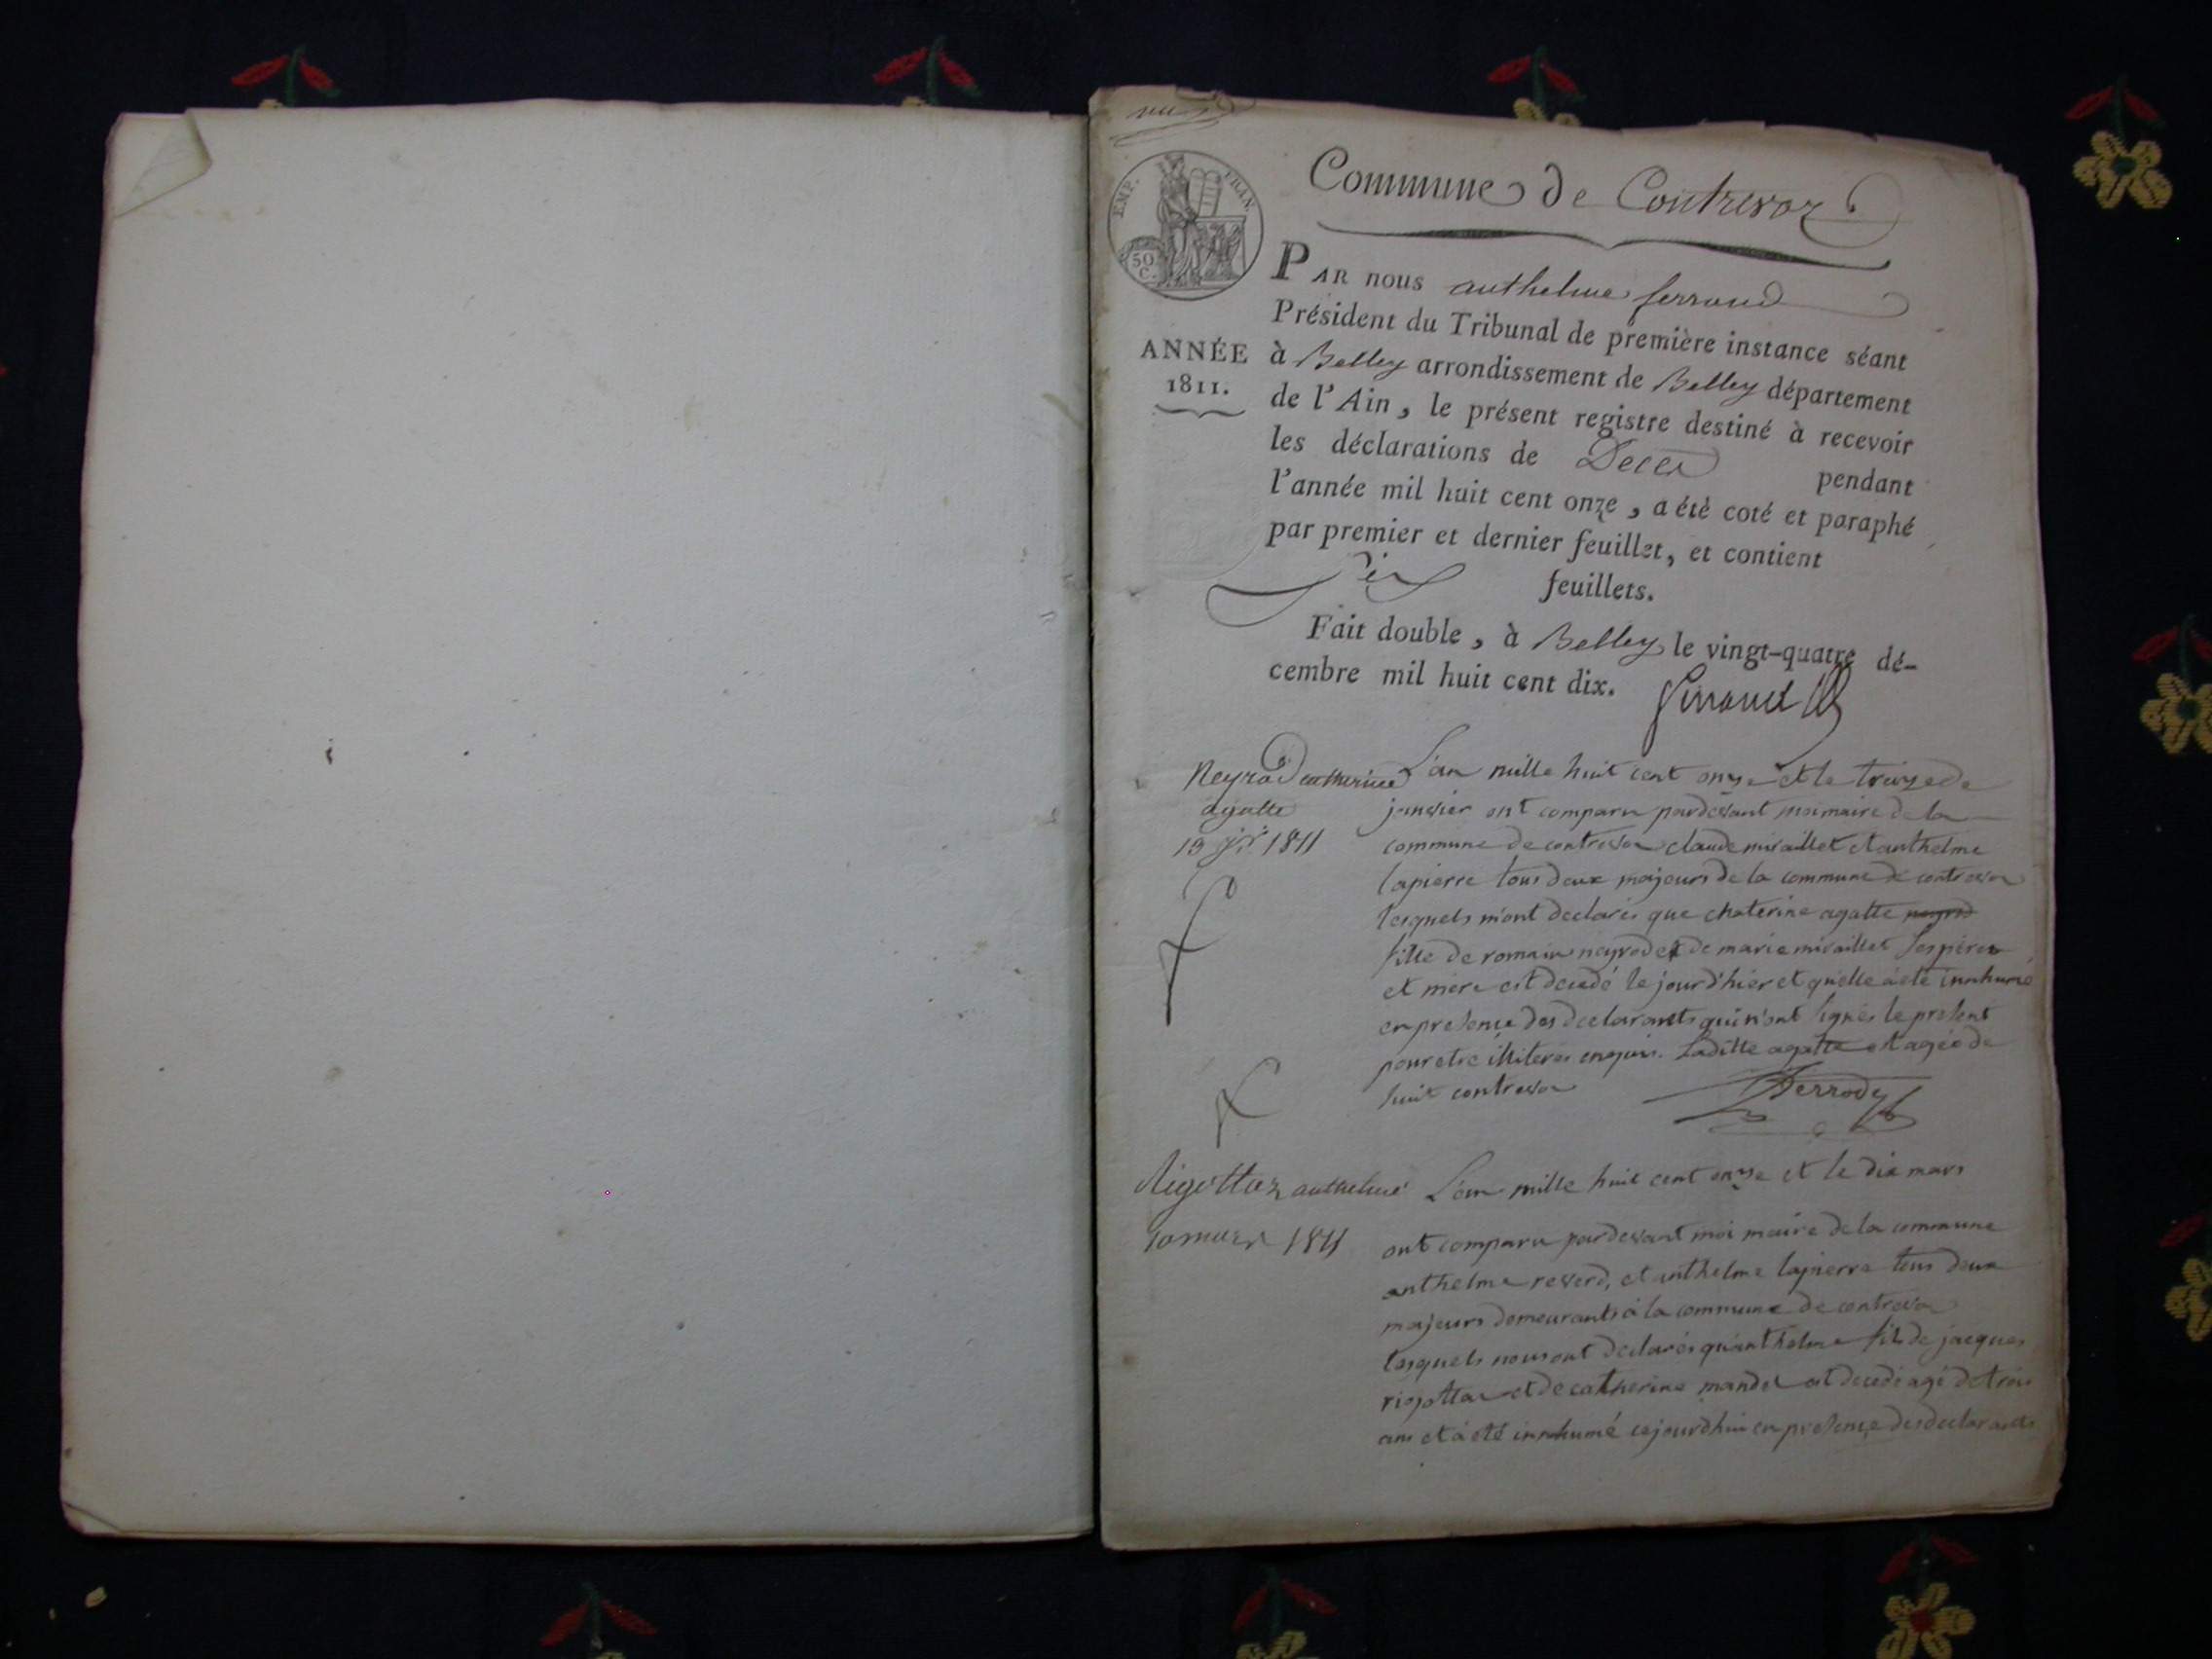 vu
EMP. FRAN.
50 C.
Commune de Contrevoz
PAR nous anthelme ferroud
Président du Tribunal de première instance séant
ANNÉE 1811.
à Belley arrondissement de Belley département
de l'Ain, le présent registre destiné à recevoir
les déclarations de Décès pendant
l'année mil huit cent onze, a été coté et paraphé
par premier et dernier feuillet, et contient
six feuillets.
Fait double, à Belley le vingt-quatre dé-
cembre mil huit cent dix.
Neyrod catherine
agatte
13 1811
L'an mille huit cent onze et le treize de
janvier ont comparu pardevant moi maire de la
commune de contrevoz claude miraillet et anthelme
lapierre tous deux majeurs de la commune de contrevoz
lesquels m'ont declarés que chaterine agatte neyrod
fille de romain neyrod et de marie miraillet ses père
et mere est decedé le jour d'hier et quelle a été innhumé
en presence des declarants qui n'ont signés le present
pour etre illiteres enquis. Laditte agatte est agée de
huit contrevoz
Perrody
Rigottaz anthelme
10 mars 1811
L'an mille huit cent onze et le dix mars
ont comparu pardevant moi maire de la commune
anthelme reverd, et anthelme lapierre tous deux
majeurs demeurants à la commune de contrevoz
lesquels nous ont declarés qu'anthelme fils de jacques
rigottaz et de catherine mandel est decedé agé de trois
ans et a été innhumé cejourdhui en presence des declarants